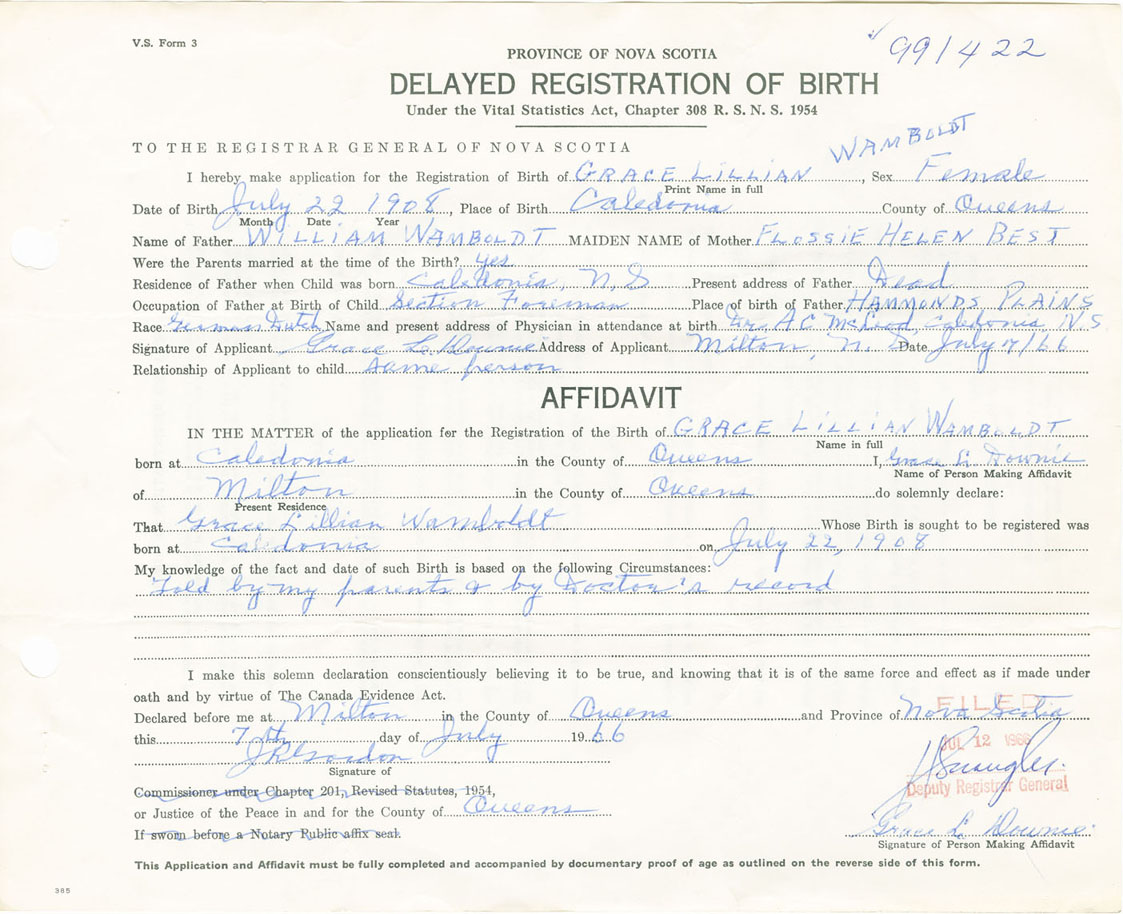 V.S. Form 3
991422
PROVINCE OF NOVA SCOTIA
DELAYED REGISTRATION OF BIRTH
Under the Vital Statistics Act, Chapter 308 R. S. N. S. 1954
TO THE REGISTRAR GENERAL OF NOVA SCOTIA
WAMBOLDT
I hereby make application for the Registration of Birth of GRACE LILLIAN, Sex Female
Print Name in full
Date of Birth July 22 1908, Place of Birth Caledonia County of Queens
Month Date Year
Name of Father WILLIAM WAMBOLDT MAIDEN NAME of Mother FLOSSIE HELEN BEST
Were the Parents married at the time of the Birth? yes
Residence of Father when Child was born Caledonia, N.S Present address of Father Dead
Occupation of Father at Birth of Child Section Foreman Place of birth of Father HAMMONDS PLAINS
Race German Dutch Name and present address of Physician in attendance at birth Dr. A C McLeod, Caledonia N.S
Signature of Applicant Grace L. Downie Address of Applicant Milton, N. S Date July 7/66
Relationship of Applicant to child Same person
AFFIDAVIT
IN THE MATTER of the application for the Registration of the Birth of GRACE LILLIAN WAMBOLDT
Name in full
born at Caledonia in the County of Queens I, Grace L. Downie
Name of Person Making Affidavit
of Milton in the County of Queens do solemnly declare:
Present Residence
That Grace Lillian Wamboldt Whose Birth is sought to be registered was
born at Caledonia on July 22, 1908
My knowledge of the fact and date of such Birth is based on the following Circumstances:
Told by my parents & by Doctor's record
I make this solemn declaration conscientiously believing it to be true, and knowing that it is of the same force and effect as if made under
oath and by virtue of The Canada Evidence Act.
FILED
Declared before me at Milton in the County of Queens and Province of Nova Scotia
this 7th day of July 1966
JUL 12 1966
Signature of
Deputy Registrar General
Commissioner under Chapter 201, Revised Statutes, 1954,
or Justice of the Peace in and for the County of Queens
If sworn before a Notary Public affix seal.
Grace L. Downie
Signature of Person Making Affidavit
This Application and Affidavit must be fully completed and accompanied by documentary proof of age as outlined on the reverse side of this form.
365